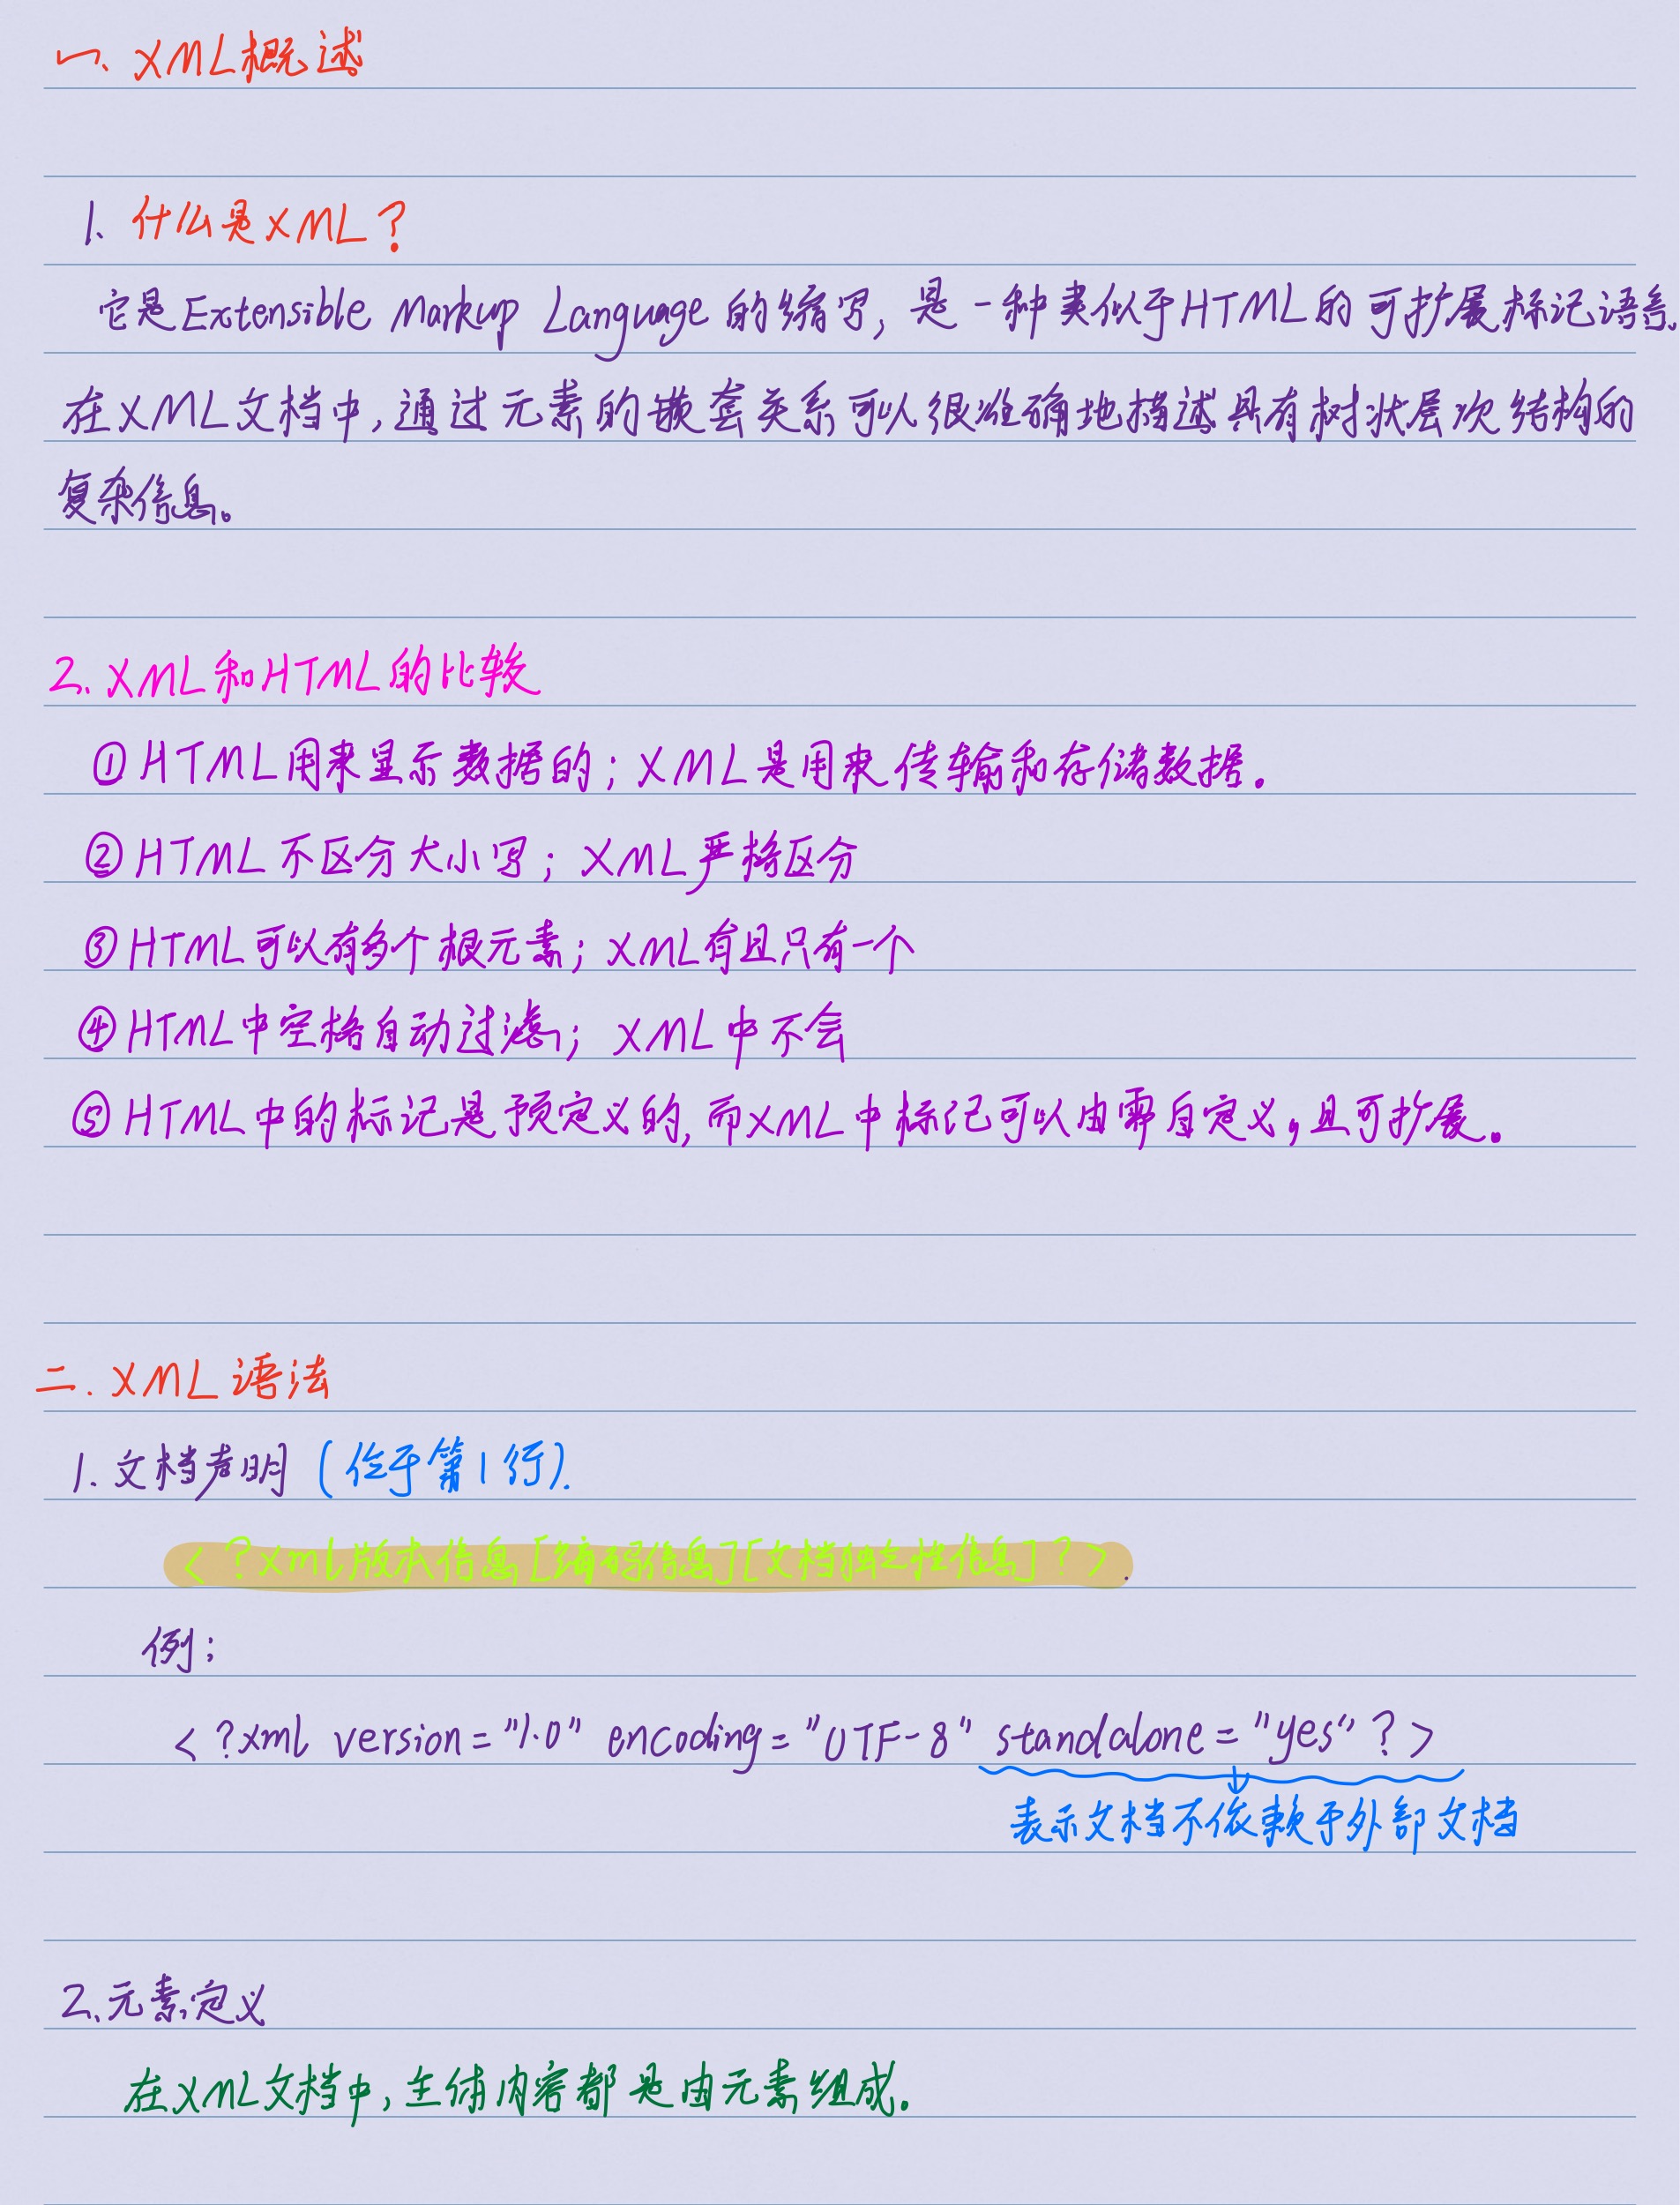 一、XML概述
1、什么是XML?
它是Extensible Markup Language的缩写,是一种类似于HTML的可扩展标记语言。
在XML文档中,通过元素的嵌套关系可以很准确地描述具有树状层次结构的
复杂信息。
2、XML和HTML的比较
①HTML用来显示数据的;XML是用来传输和存储数据。
②HTML不区分大小写;XML严格区分
③HTML可以有多个根元素;XML有且只有一个
④HTML中空格自动过滤;XML中不会
⑤HTML中的标记是预定义的,而XML中标记可以由需自定义,且可扩展。
二.XML语法
1.文档声明(位于第1行).
<?xml版本信息[编码信息][文档独立性信息]?>.
例:
<?xml version="1.0" encoding="UTF-8" standalone="yes"?>
表示文档不依赖于外部文档
2、元素定义
在XML文档中,主体内容都是由元素组成.